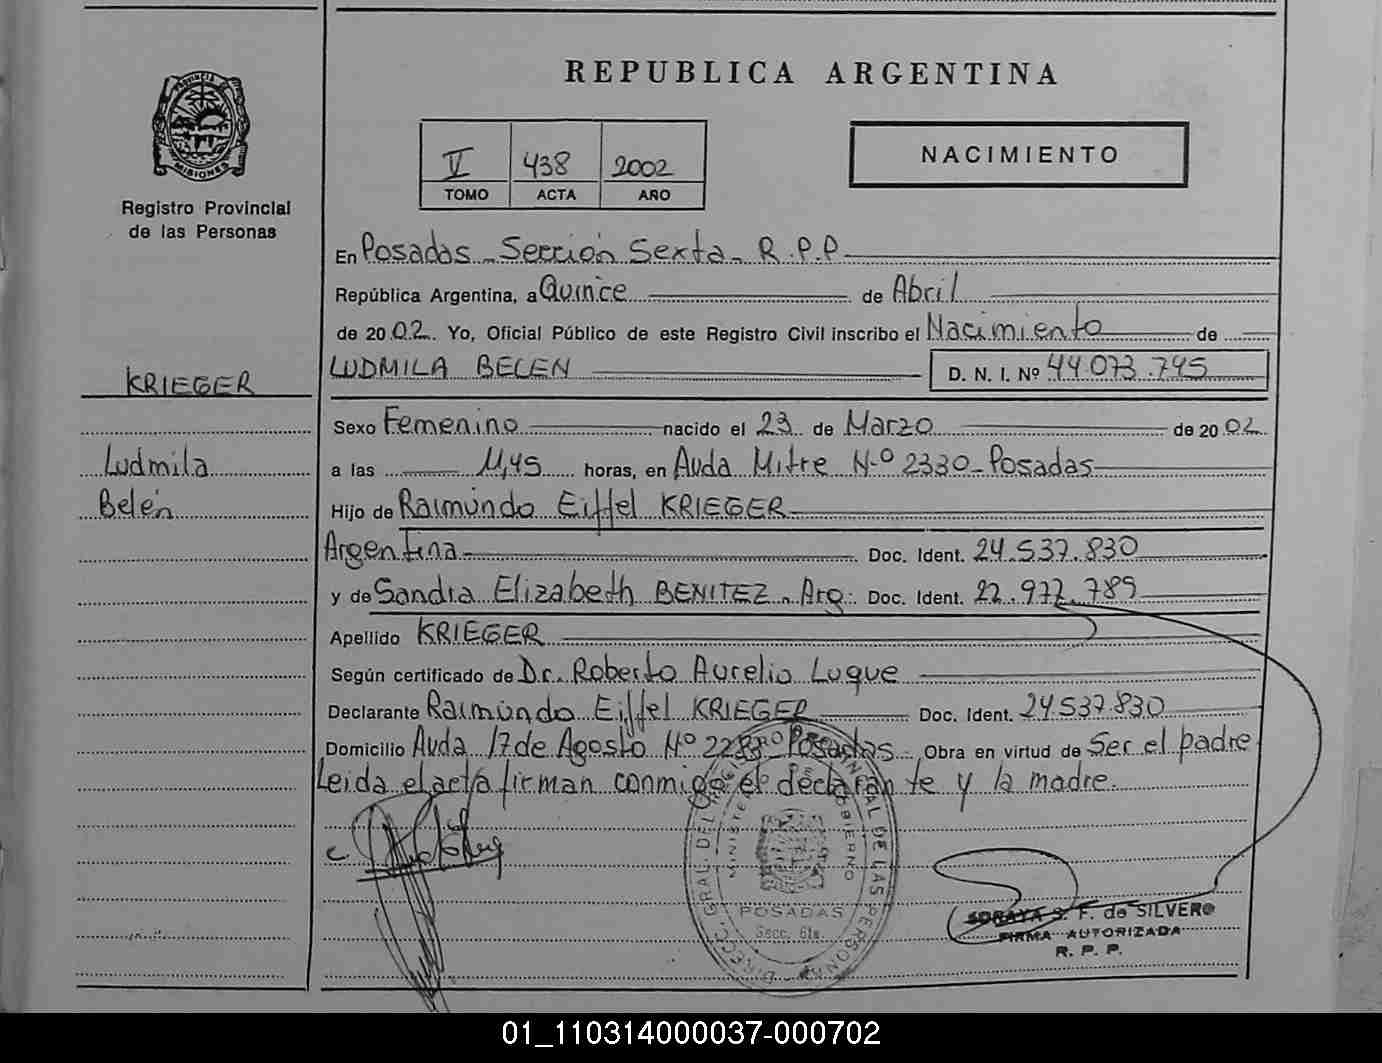 REPUBLICA ARGENTINA
PROVINCIA
MISIONES
Registro Provincial
de las Personas
V 438 2002
TOMO ACTA AÑO
NACIMIENTO
En Posadas - Sección Sexta - R.P.P.
República Argentina, a Quince de Abril
de 20 02. Yo, Oficial Público de este Registro Civil inscribo el Nacimiento de
LUDMILA BELEN D. N. I. Nº 44.073.745
KRIEGER
Ludmila
Belén
Sexo Femenino nacido el 23 de Marzo de 20 02
a las 11,45 horas, en Avda Mitre Nº 2330 - Posadas
Hijo de Raimundo Eiffel KRIEGER
Argentina Doc. Ident. 24.537.830
y de Sandra Elizabeth BENITEZ - Arg. Doc. Ident. 22.977.789
Apellido KRIEGER
Según certificado de Dr. Roberto Aurelio Luque
Declarante Raimundo Eiffel KRIEGER Doc. Ident. 24.537.830
Domicilio Avda 17 de Agosto Nº Posadas Obra en virtud de Ser el padre
Leida el acta firman conmigo el declarante y la madre.
DIRECC. GRAL. DEL REGISTRO PROVINCIAL DE LAS PERSONAS
GOBIERNO
POSADAS
Secc. 6ta.
SORAYA S. F. de SILVERO
FIRMA AUTORIZADA
R. P. P.
01_110314000037-000702